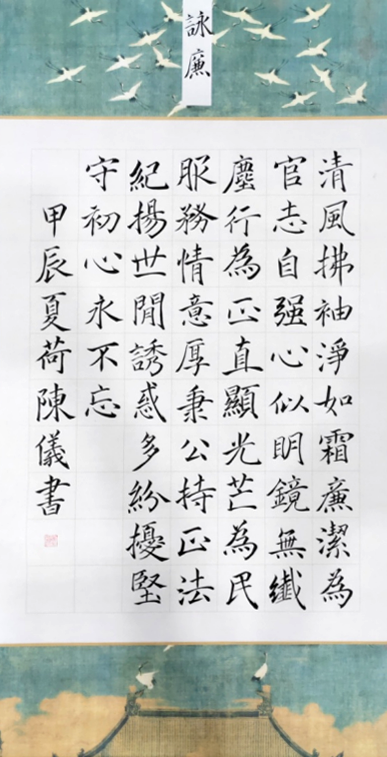 詠廉
清風拂袖淨如霜廉潔為
官志自强心似明鏡無纖
塵行為正直顯光芒為民
服務情意厚秉公持正法
紀揚世間誘惑多紛擾堅
守初心永不忘
甲辰夏荷陳儀書